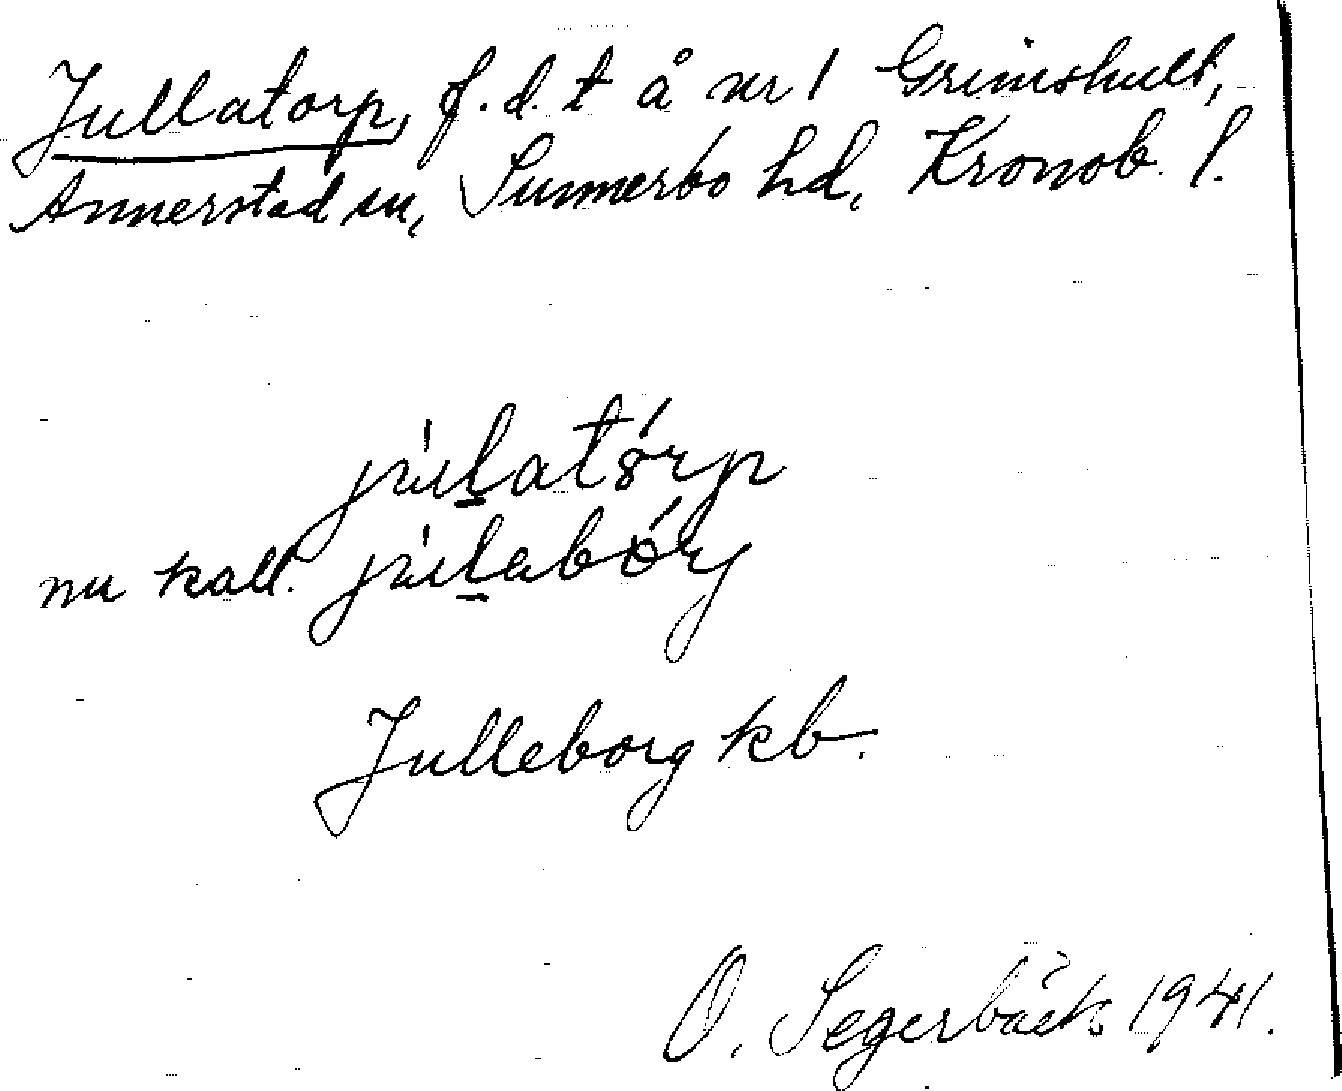 Jullatorp, f.d. t å nr 1 Grimshult,
Annerstad sn, Sunnerbo hd, Kronob. l.
júl̠atórp
nu kall. júl̠abórj
Julleborg kb.
O. Segerbäck 1941.